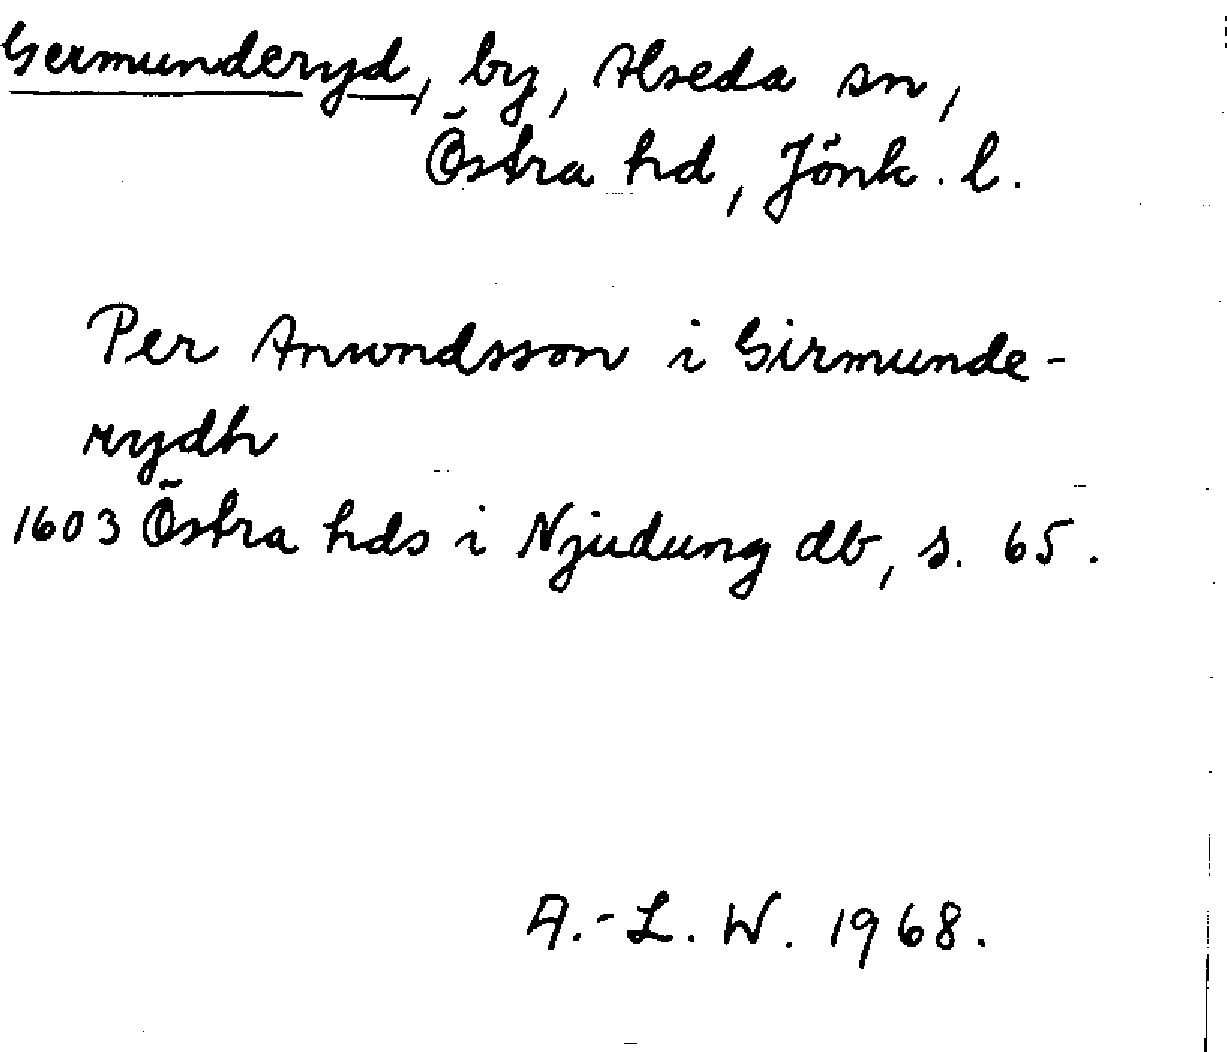 Germunderyd, by, Alseda sn,
Östra hd, Jönk. l.
Per Anwndsson i Girmunde-
rydh
1603 Östra hds i Njudung db, s. 65.
A.-L. W. 1968.